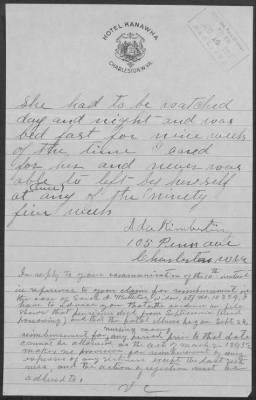 HOTEL KANAWHA
CHARLESTON, W.VA.
She had to be watched
day and night and was
bed fast for nine weeks
of the time I cared
for her and never was
able to left by herself
at any of the ninety
(time)
five weeks
Ida Pemberton
105 Penn ave
Charleston W Va
In reply to your communication of the
in reference to your claim for reimbursement in
the case of Sarah A.
have to advise you that the evidence on file
shows that pensioner died from Septicemia (blood
poisoning) and that the fatal illness began Sept 24,
nursing nor any
reimbursement for any period prior to that date
cannot be allowed as the act of March 2 1895
makes no provision for reimbursement of any
expenses of any sickness except the last sick-
ness, and the action of rejection must be
adhered to.